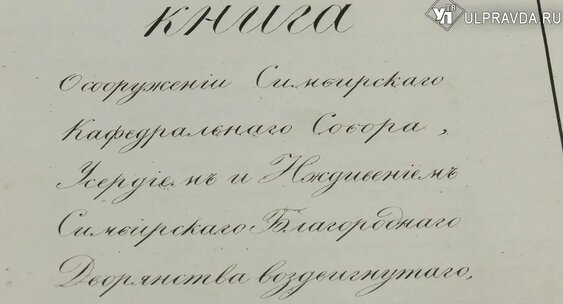 УП ТВ ULPRAVDA.RU
книга
О сооруженіи Симбирскаго
Кафедральнаго Собора,
Усердіемъ и Иждивеніемъ
Симбирскаго Благороднаго
Дворянства воздвигнутаго,